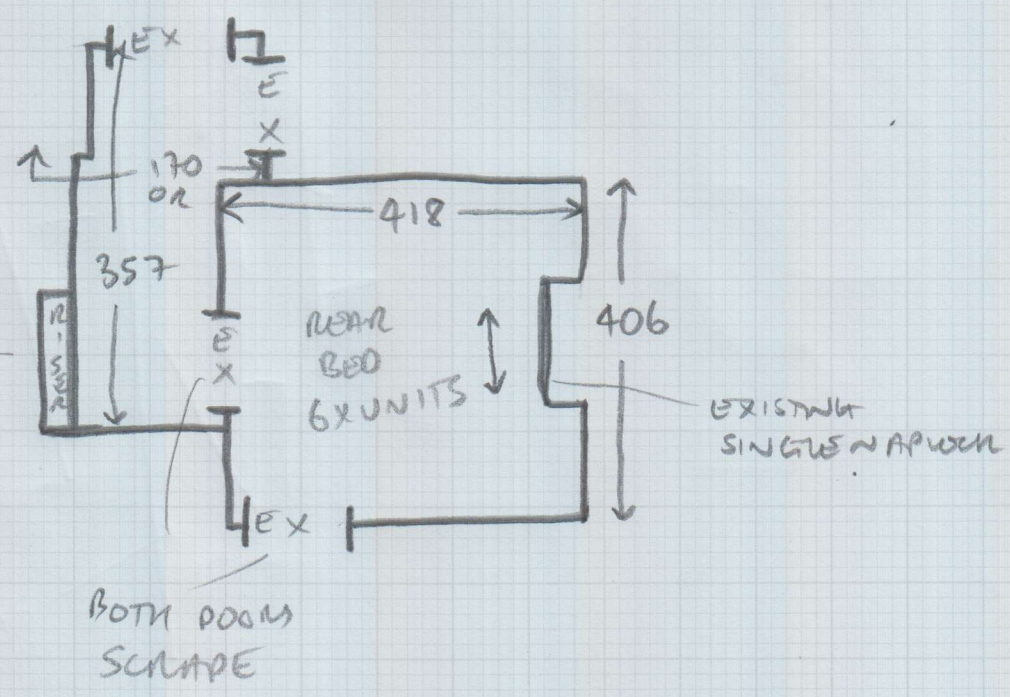 EX
EX
170
OR
418
357
406
RISER
EX
REAR
BED
6X UNITS
EXISTING
SINGLE NAPLOCK
EX
BOTH DOORS
SCRAPE